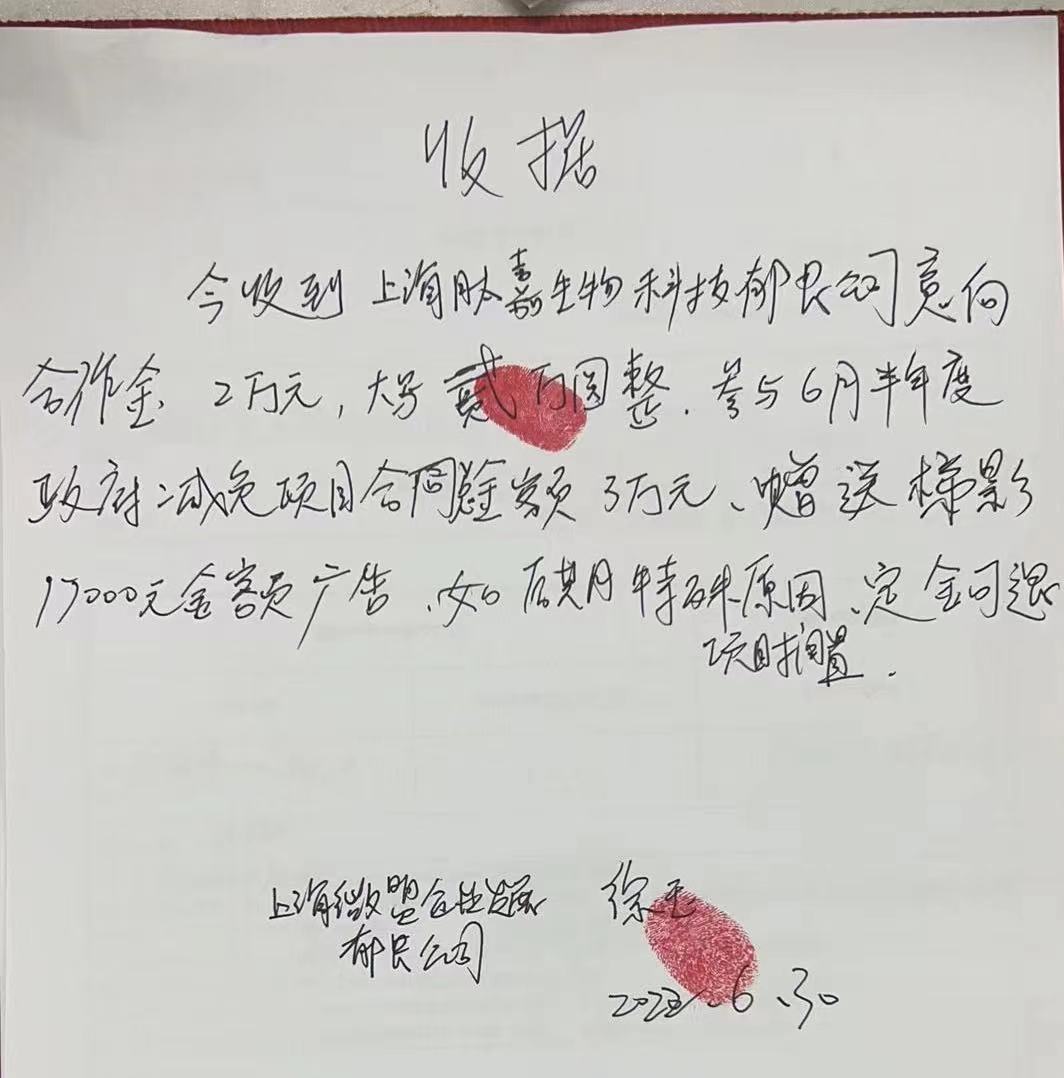 收据
今收到上海肽嘉生物科技有限公司意向
合作金2万元，大写贰万圆整.参与6月半年度
政府减免项目合同金额3万元、赠送梯影
17000元金额广告、如后期特殊原因、定金可退
项目搁置.
上海微盟企业发展 徐玉
有限公司
6.30